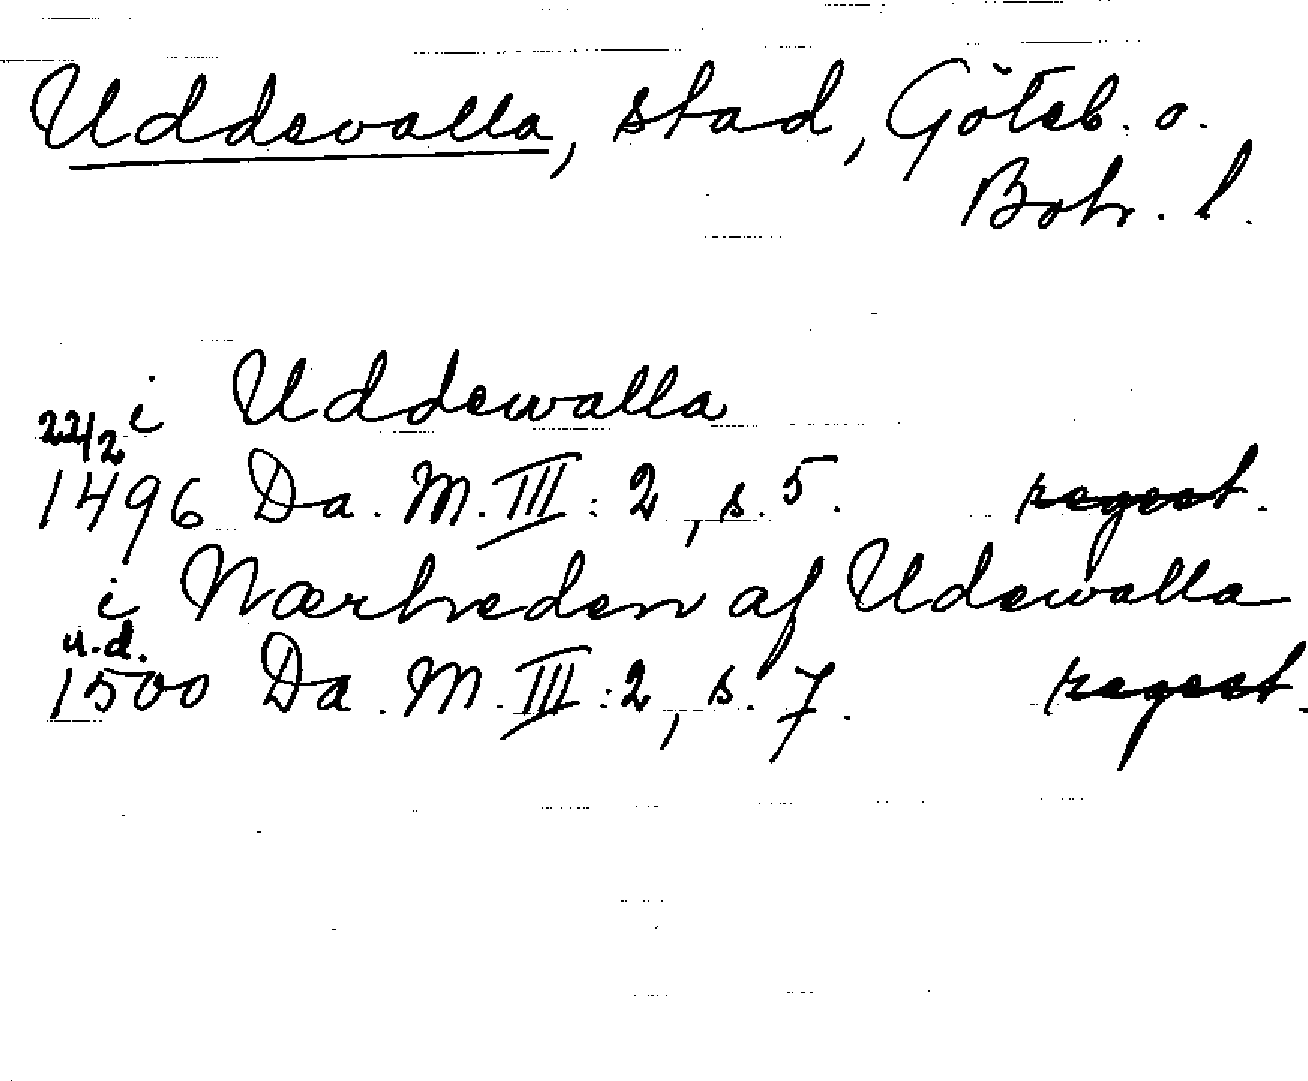 Uddevalla, stad, Göteb. o.
Boh. l.
i Uddewalla
22/2
1496 Da. M. III: 2, s. 5. regest.
i Nærheden af Udewalla
u.d.
1500 Da. M. III: 2, s. 7. regest.